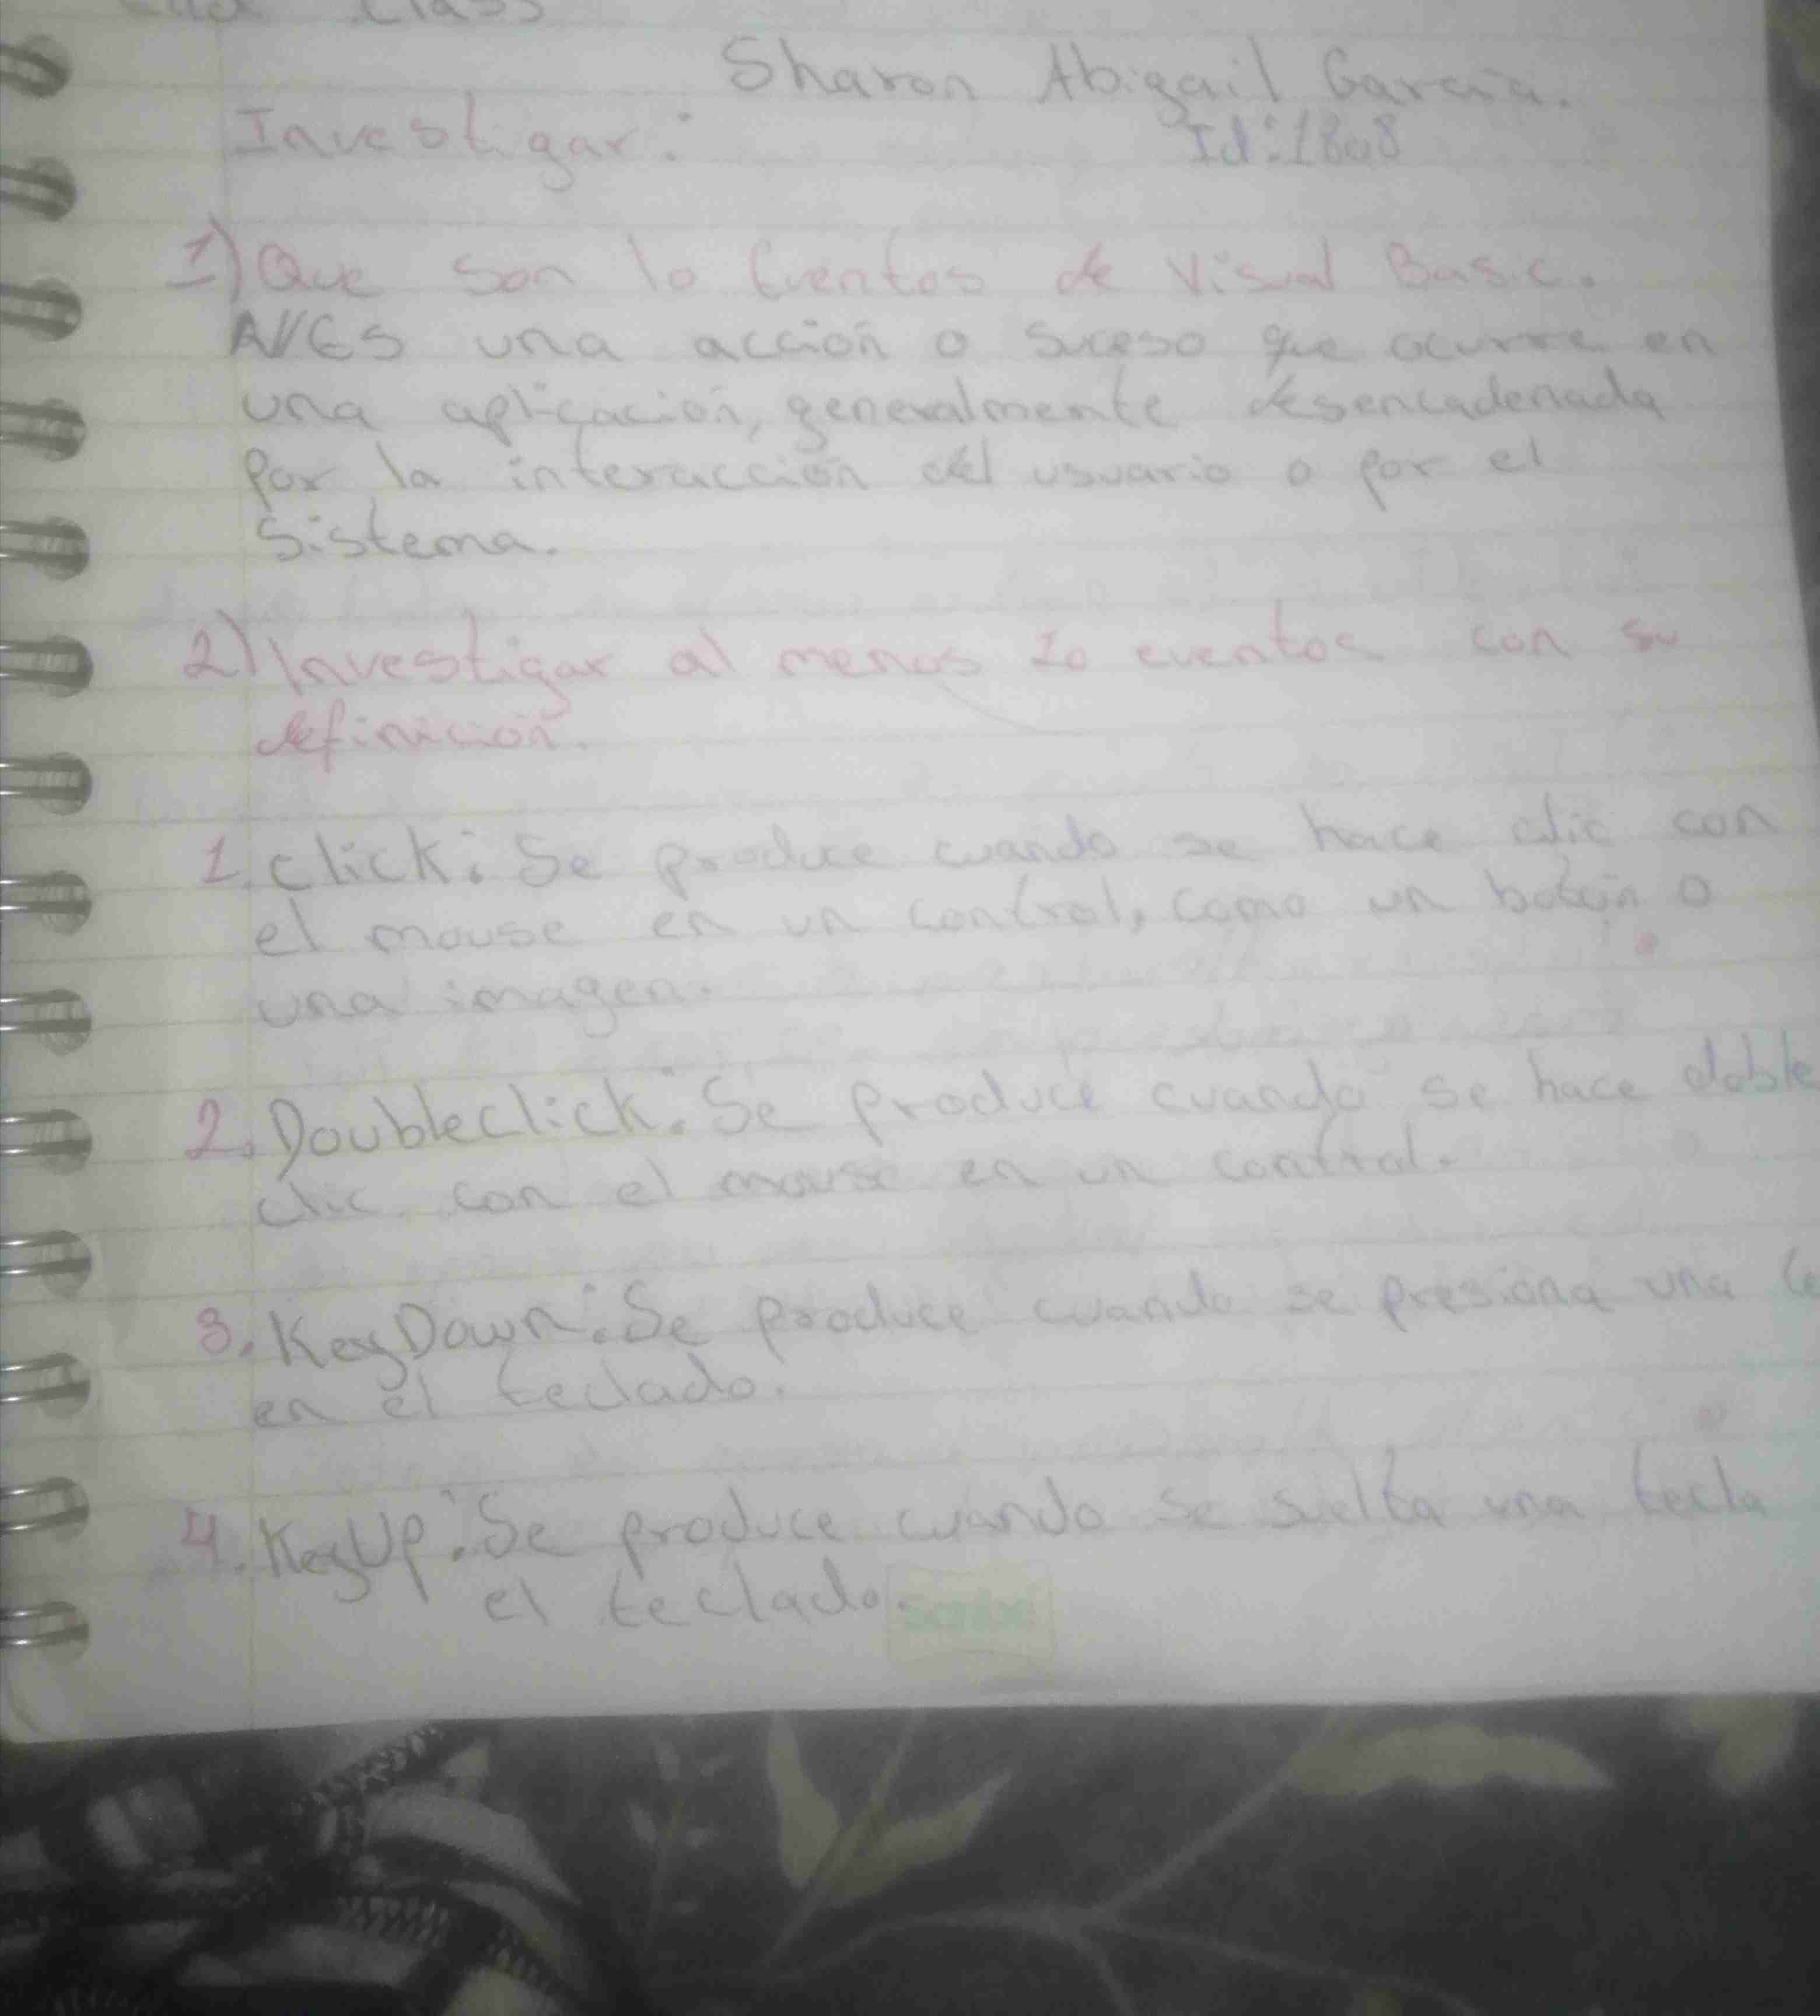 Class
Sharon Abigail Garcia.
Investigar:
Id:1808
1) Que son lo Eventos de Visual Basic.
R// Es una acción o suceso que ocurre en
una aplicación, generalmente desencadenada
por la interacción del usuario o por el
sistema.
2) Investigar al menos 10 eventos con su
definición.
1. Click: Se produce cuando se hace clic con
el mouse en un control, como un botón o
una imagen.
2. Doubleclick: Se produce cuando se hace doble
clic con el mouse en un control.
3. KeyDown: Se produce cuando se presiona una
en el teclado.
4. KeyUp: Se produce cuando se suelta una tecla
el teclado.
scribe